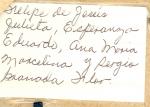 Felipe de Jesús
Julieta, Esperanza
Eduardo, Ana Maria
Marcelina y Sergio
Granada Flor.